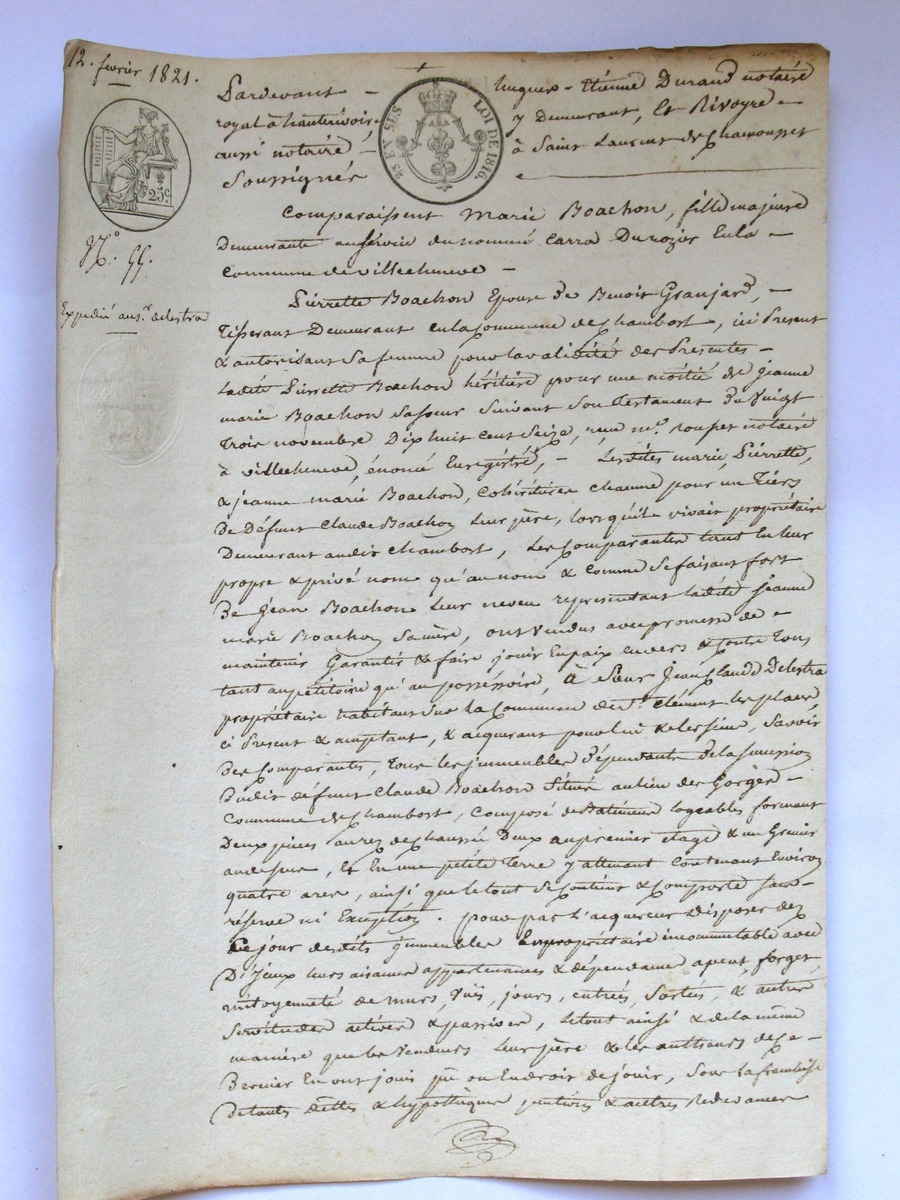 12. fevrier 1821.
25 EN SUS LOI DE 1816.
25c.
N.° 55.
Expedié au s.r delestra
Pardevant - hugues - Etienne Durand notaire
royal à hauterivoire, y Demeurant, Et Rivoyre
aussi notaire - à Saint Laurent de Chamousset
Soussignés
Comparaissent marie Boachon, fille majeure
Demeurante au service du nommé Carra Durozier En la -
Commune de villecheneve -
Pierrette Boachon Epouse De Benoit Granjard, -
Tisserant Demeurant en la Commune de Chambost, ici Present
& autorisant Sa femme pour la validité des Presentes -
Ladite Pierrette Boachon héritière pour une moitié de jeanne
marie Boachon Sa Soeur Suivant Son Testament Du Vingt
Trois novembre Dix huit Cent Seize, reçu m.e notaire
à villecheneve, énoncé Enregistré, - Lesdites marie, Pierrette,
& jeanne marie Boachon, Cohéritières Chacune pour un Tiers
De Défunt Claude Boachon Leur père, lorsqu'il vivait propriétaire
Demeurant audit Chambost, Les Comparantes tant En leur
propre & privé nom qu'au nom & Comme Se faisant fort
De Jean Boachon Leur neveu représentant ladite Jeanne
marie Boachon Sa mère, ont vendus avec promesse de -
maintenir Garantir & faire jouir En paix envers & Contre Tous
tant au pétitoire qu'au possessoire, à Sieur Jean Claude Delestra
propriétaire habitant Sur La Commune de S.t Clément les places,
ci Present & acceptant, & acquerant pour lui & les siens, Savoir
Des Comparantes, Tous les jmmeubles Dépendants De la Succession
Dudit défunt Claude Boachon Situés au lieu des Gorges -
Commune de Chambost, Composé de Batiments logeables formant
Deux pièces au rez de Chaussée Deux au premier etage & un Grenier
au dessus, Et En une petite Terre y attenant Contenant Environ
quatre ares, ainsi que le tout Se Contient & Comporte Sans
réserve ni Exception. pour par L'acquereur Disposer dez
Ce jour desdits jmmeubles En propriétaire incommutable avec
D'jceux leurs aisances appartenances & dépendances
mitoyenneté de murs, Vuës, jours, entrées, Sorties, & autres
Servitudes actives & passives, Le tout ainsi & de la même
manière que les vendeurs Leur père & les autheurs de Ce -
Dernier En ont joui pû ou Eu droit de jouir, Sous la franchise
De toutes Dettes & hypothèques & autres Redevances